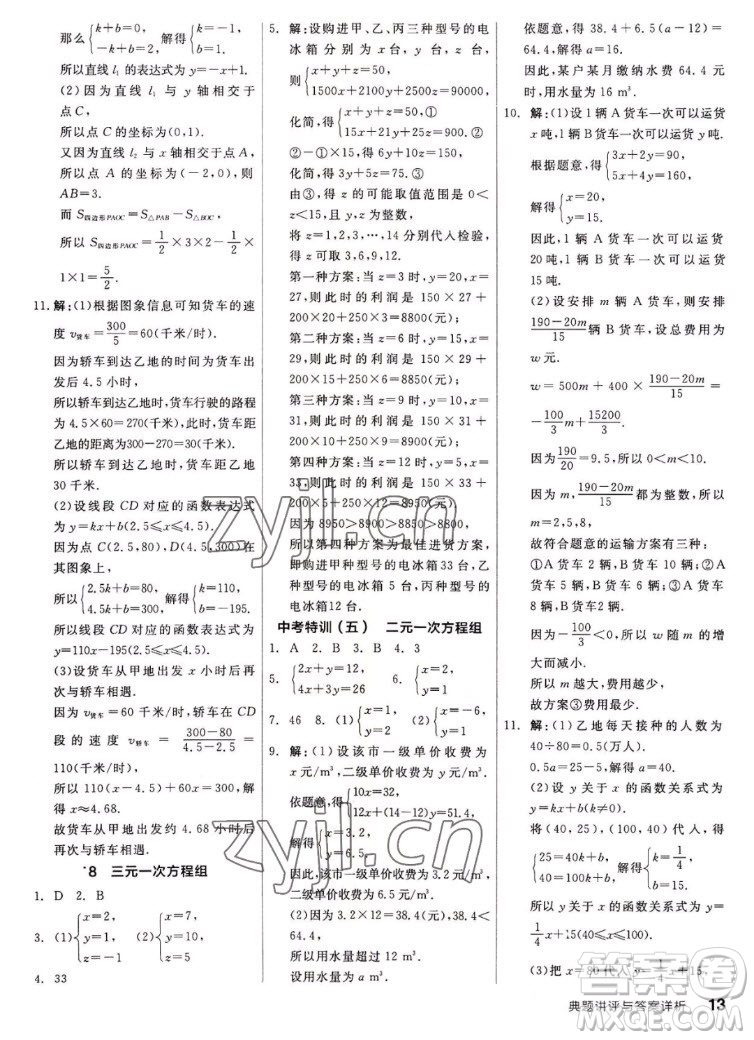 那么{k+b=0, -k+b=2. 解得{k=-1, b=1.
所以直线 l₁ 的表达式为 y=-x+1.
(2)因为直线 l₁ 与 y 轴相交于
点 C,
所以点 C 的坐标为(0,1).
又因为直线 l₂ 与 x 轴相交于点 A,
所以点 A 的坐标为(-2,0),则
AB=3.
而 S四边形PAOC=S△PAB-S△BOC,
所以 S四边形PAOC=1/2×3×2-1/2
×1×1=5/2.
11. 解:(1)根据图象信息可知货车的速
度 v货车=300/5=60(千米/时).
因为轿车到达乙地的时间为货车出
发后 4.5 小时,
所以轿车到达乙地时,货车行驶的路程
为 4.5×60=270(千米),此时,货车距
乙地的距离为300-270=30(千米).
所以轿车到达乙地时,货车距乙地
30 千米.
(2)设线段 CD 对应的函数表达式
为 y=kx+b(2.5≤x≤4.5).
因为点 C(2.5,80),D(4.5,300)在
其图象上,
所以{2.5k+b=80, 4.5k+b=300. 解得{k=110, b=-195.
所以线段 CD 对应的函数表达式为
y=110x-195(2.5≤x≤4.5).
(3)设货车从甲地出发 x 小时后再
次与轿车相遇.
因为 v货车=60(千米/时),轿车在 CD
段的速度 v轿车=(300-80)/(4.5-2.5)=
110(千米/时)
所以 110(x-4.5)+60x=300.
解得 x≈4.68.
故货车从甲地出发 4.68 小时后
再次与轿车相遇.
*8 三元一次方程组
1. D 2. B
3. (1){x=2, y=1, z=-1 (2){x=7, y=0, z=5
4. 33
5. 解:设购进甲、乙、丙三种型号的电
冰箱分别为 x 台, y 台, z 台,
则{x+y+z=50, 1500x+2100y+2500z=90000.
化简,得{x+y+z=50,① 15x+21y+25z=900.②
②-①×15,得 6y+10z=150.
化简,得 3y+5z=75. ③
由③,得 z 的取值范围是 0<
z<15,且是整数.
将 z=1,2,3,…,14 分别代入检验,
得 z 可取 3,6,9,12.
第一种方案:当 z=3 时,y=20,x=
27,则此时的利润是 150×27+
200×20+250×3=8800(元);
第二种方案:当 z=6 时,y=15,x=
29,则此时的利润是 150×29+
200×15+250×6=8850(元);
第三种方案:当 z=9 时,y=10,x=
31,则此时的利润是 150×31+
200×10+250×9=8900(元);
第四种方案:当 z=12 时,y=5,x=
33,则此时的利润是 150×33+
200×5+250×12=8950(元).
因为 8950>8900>8850>8800,
所以第四种方案为最佳进货方案,
即购进甲种型号的电冰箱 33 台,乙
种型号的电冰箱 5 台,丙种型号的
电冰箱12 台.
中考特训(五) 二元一次方程组
1. A 2. B 3. B 4. 3
5. {2x+y=12, 4x+3y=26
7. 46 8. (1){x=1, y=2 (2){x=-6, y=1
9. 解:(1)设该市一级单价收费为
x 元/m³,二级单价收费为 y 元/m³.
依题意,得{10x=32, 12x+(14-12)y=51.4,
解得{x=3.2, y=6.5.
因此,该市一级单价收费为 3.2 元/m³,
二级单价收费为 6.5 元/m³.
(2)因为 3.2×12=38.4(元),38.4<
64.4,
所以用水量超过 12 m³.
设用水量为 a m³.
依题意,得 38.4+6.5(a-12)=
64.4,解得 a=16.
因此,某户某月缴纳水费 64.4 元
时,用水量为 16 m³.
10. 解:(1)设 1 辆 A 货车一次可以运货
x 吨,1 辆 B 货车一次可以运货 y 吨.
根据题意,得{3x+2y=90, 5x+4y=160.
解得{x=20, y=15.
因此,1 辆 A 货车一次可以运货
20吨,1 辆 B 货车一次可以运货
15吨.
(2)设安排 m 辆 A 货车,则安排
(190-20m)/15辆 B 货车,设总费用为
w 元.
w=500m+400×(190-20m)/15=
-100/3 m+15200/3.
因为190/20=9.5,所以 0<m<10.
因为 m,(190-20m)/15都为整数,所以
m=2,5,8,
故符合题意的运输方案有三种:
①A 货车 2 辆,B 货车 10 辆;②A 货
车 5 辆,B 货车 6 辆;③A 货车 8 辆,
B 货车2 辆.
因为-100/3<0,所以 w 随 m 的增
大而减小.
所以当 m=8 时,费用最少.
故方案③费用最少.
11. 解:(1)乙地每天接种的人数为
40÷80=0.5(万人).
0.5a=25-5,解得 a=40.
(2)设 y 关于 x 的函数关系式为
y=kx+b,
将(40,25),(100,40)代入,得
{25=40k+b, 40=100k+b. 解得{k=1/4, b=15.
所以 y 关于 x 的函数关系式为 y=
1/4x+15(40≤x≤100).
(3)把 x=80代入 y=1/4x+15,得
典题讲评与答案详析 13
zyjl.cn
zyjl.cn